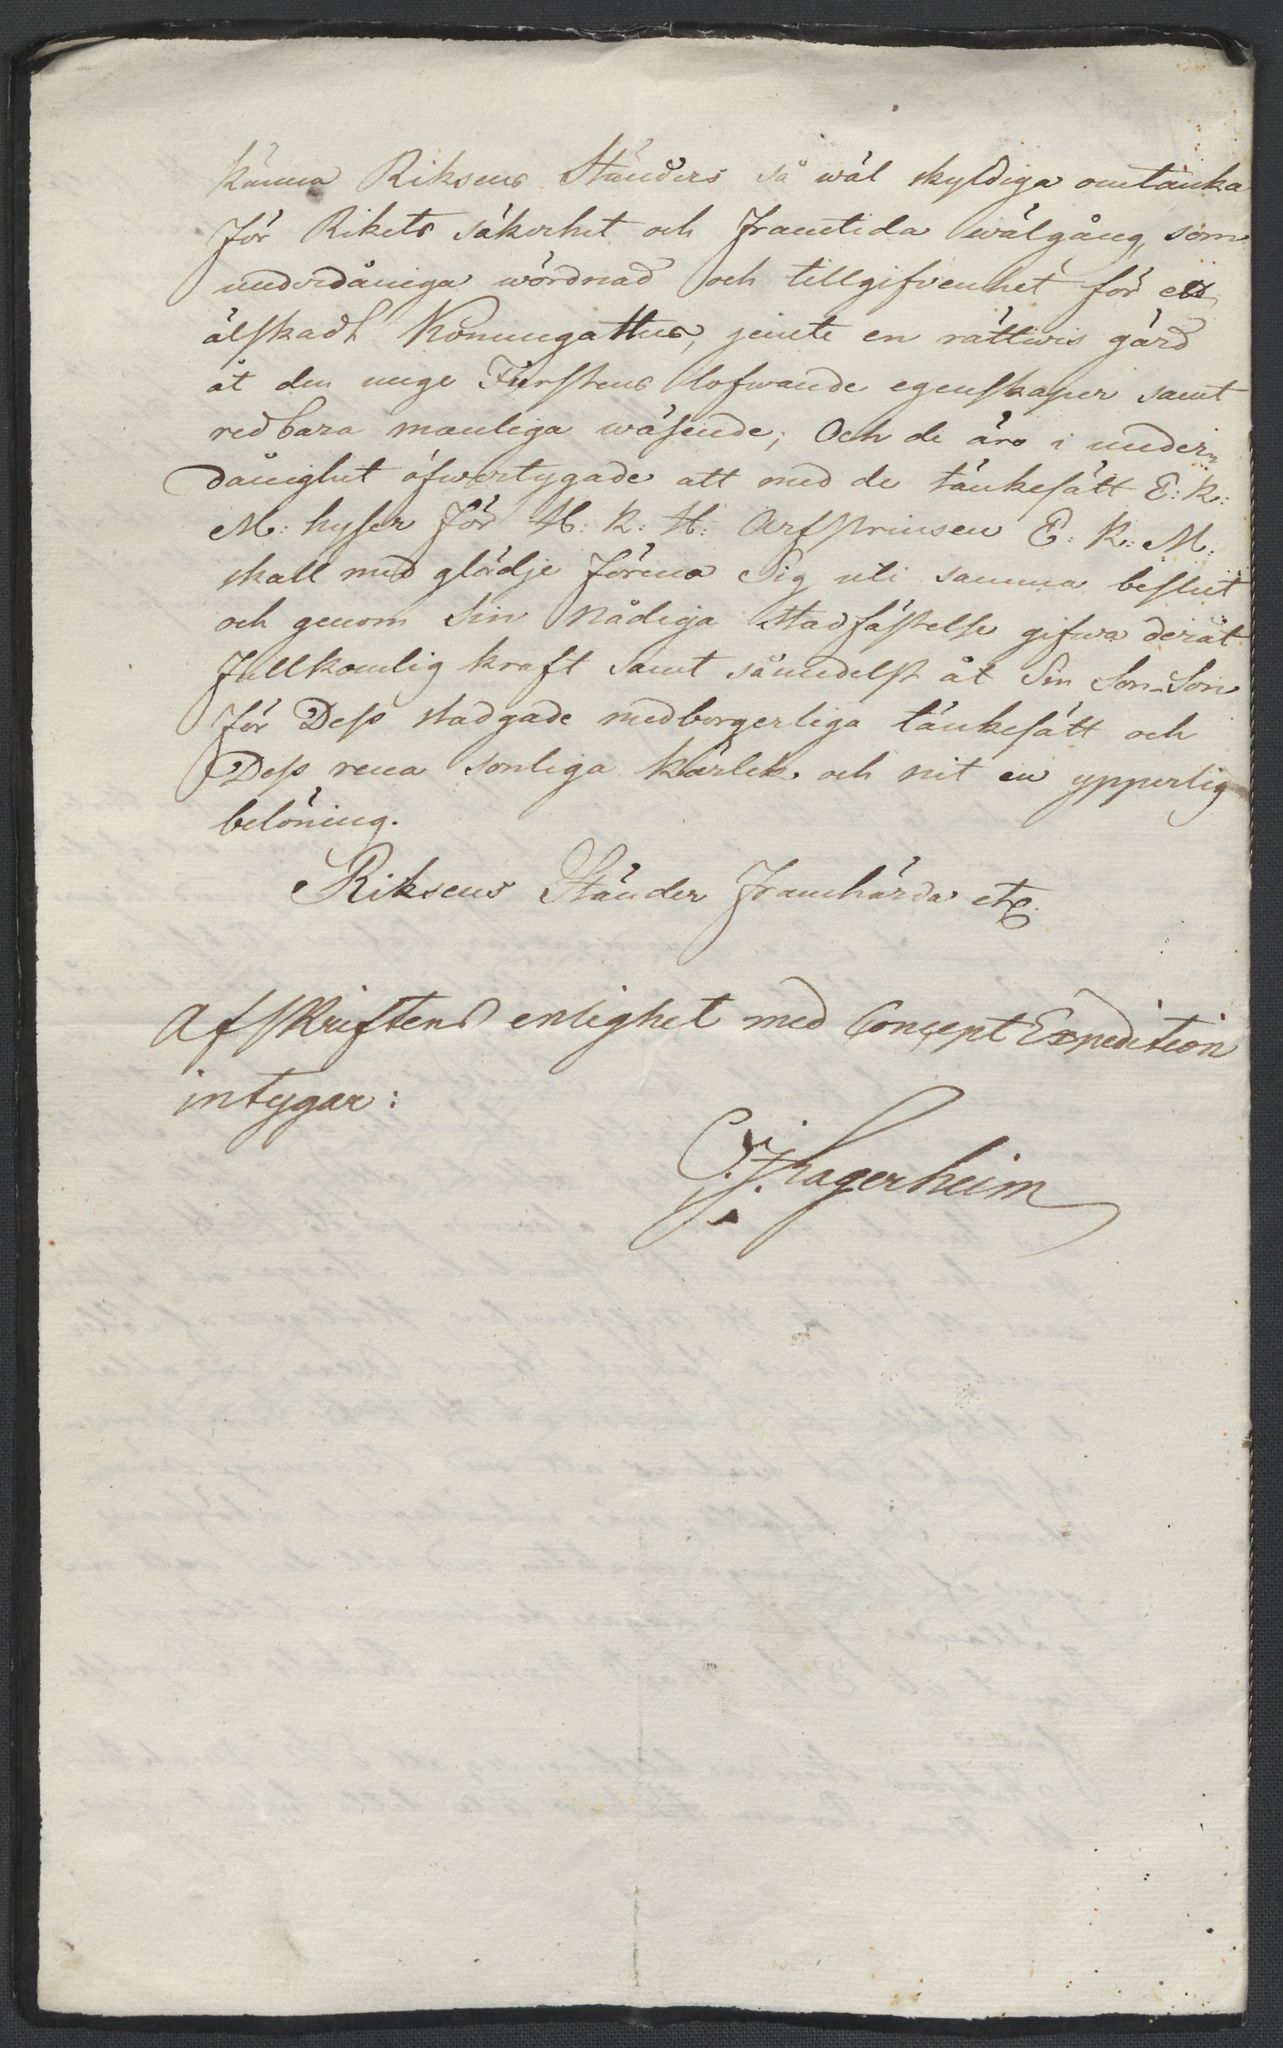 känna Riksens Ständers så wäl skyldiga omtanka
för Rikets säkerhet och framtida wälgång, som
underdåniga wördnad och tillgifvenhet för ett
älskadt Konungahus, jemte en rättwis gärd
åt den unge Furstens lofwande egenskaper samt
redbara manliga wäsende; Och de äro i under-
dånighet öfwertygade att med de tänkesätt E: K:
M: hyser för H: K: H: Arfprinsen E: K: M:
skall med glädje förena Sig uti samma beslut
och genom Sin Nådiga Stadfästelse gifwa deråt
fullkomlig kraft samt såmedelst åt Sin Son-Son
för Dess stadgade medborgerliga tänkesätt och
Dess rena sonliga kärlek och nit en ypperlig
belöning.
Riksens Ständer framhärda etc.
Afskriftens enlighet med Concept Expedition
intygar:
Lagerheim